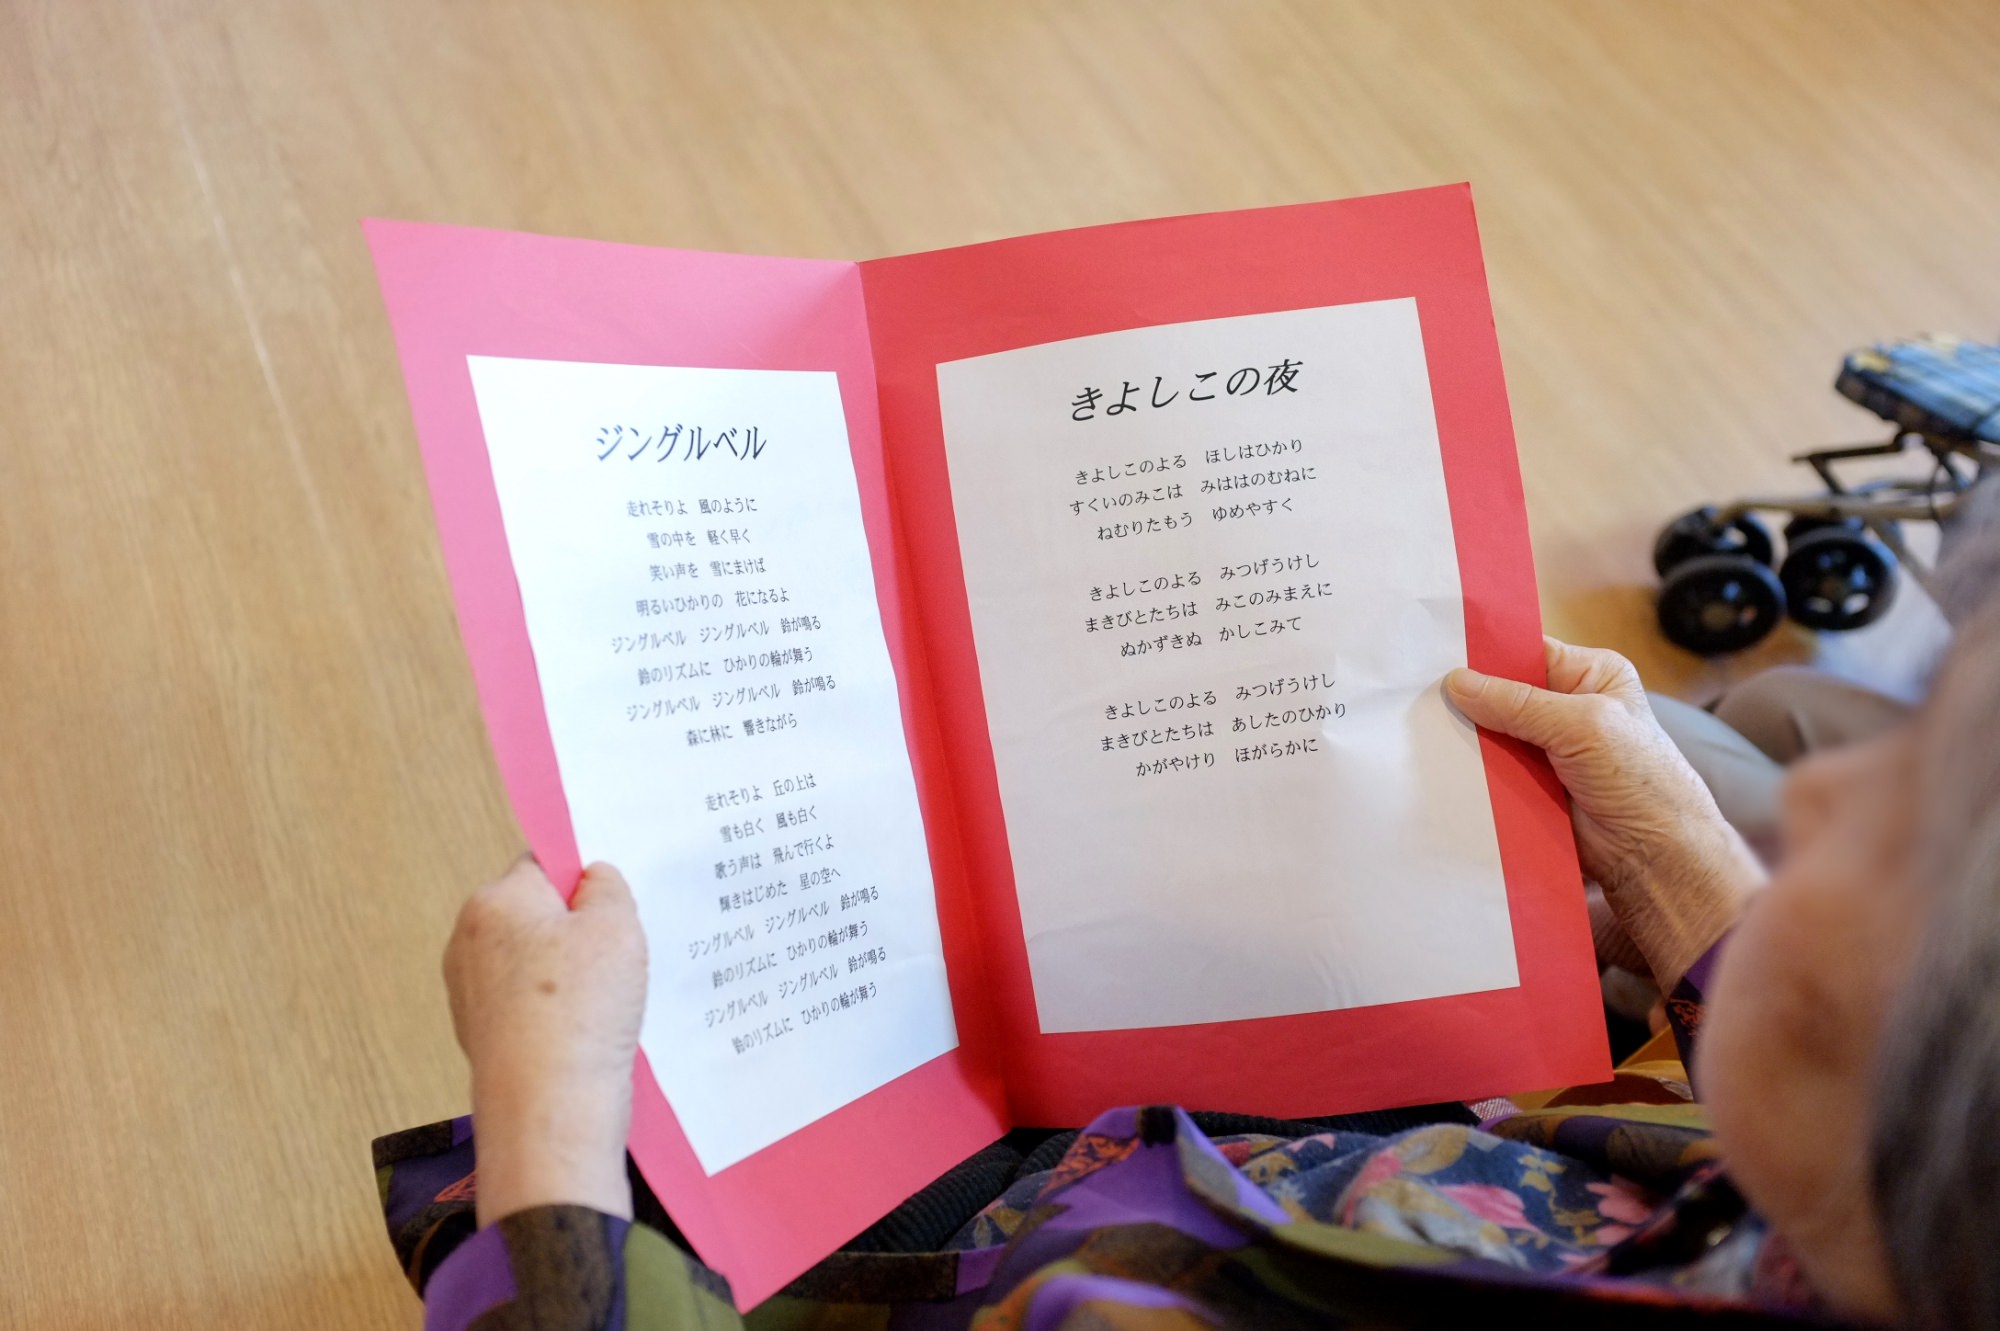 ジングルベル
走れそりよ　風のように
雪の中を　軽く早く
笑い声を　雪にまけば
明るいひかりの　花になるよ
ジングルベル　ジングルベル　鈴が鳴る
鈴のリズムに　ひかりの輪が舞う
ジングルベル　ジングルベル　鈴が鳴る
森に林に　響きながら
走れそりよ　丘の上は
雪も白く　風も白く
歌う声は　飛んで行くよ
輝きはじめた　星の空へ
ジングルベル　ジングルベル　鈴が鳴る
鈴のリズムに　ひかりの輪が舞う
ジングルベル　ジングルベル　鈴が鳴る
鈴のリズムに　ひかりの輪が舞う
きよしこの夜
きよしこのよる　ほしはひかり
すくいのみこは　みははのむねに
ねむりたもう　ゆめやすく
きよしこのよる　みつげうけし
まきびとたちは　みこのみまえに
ぬかずきぬ　かしこみて
きよしこのよる　みつげうけし
まきびとたちは　あしたのひかり
かがやけり　ほがらかに